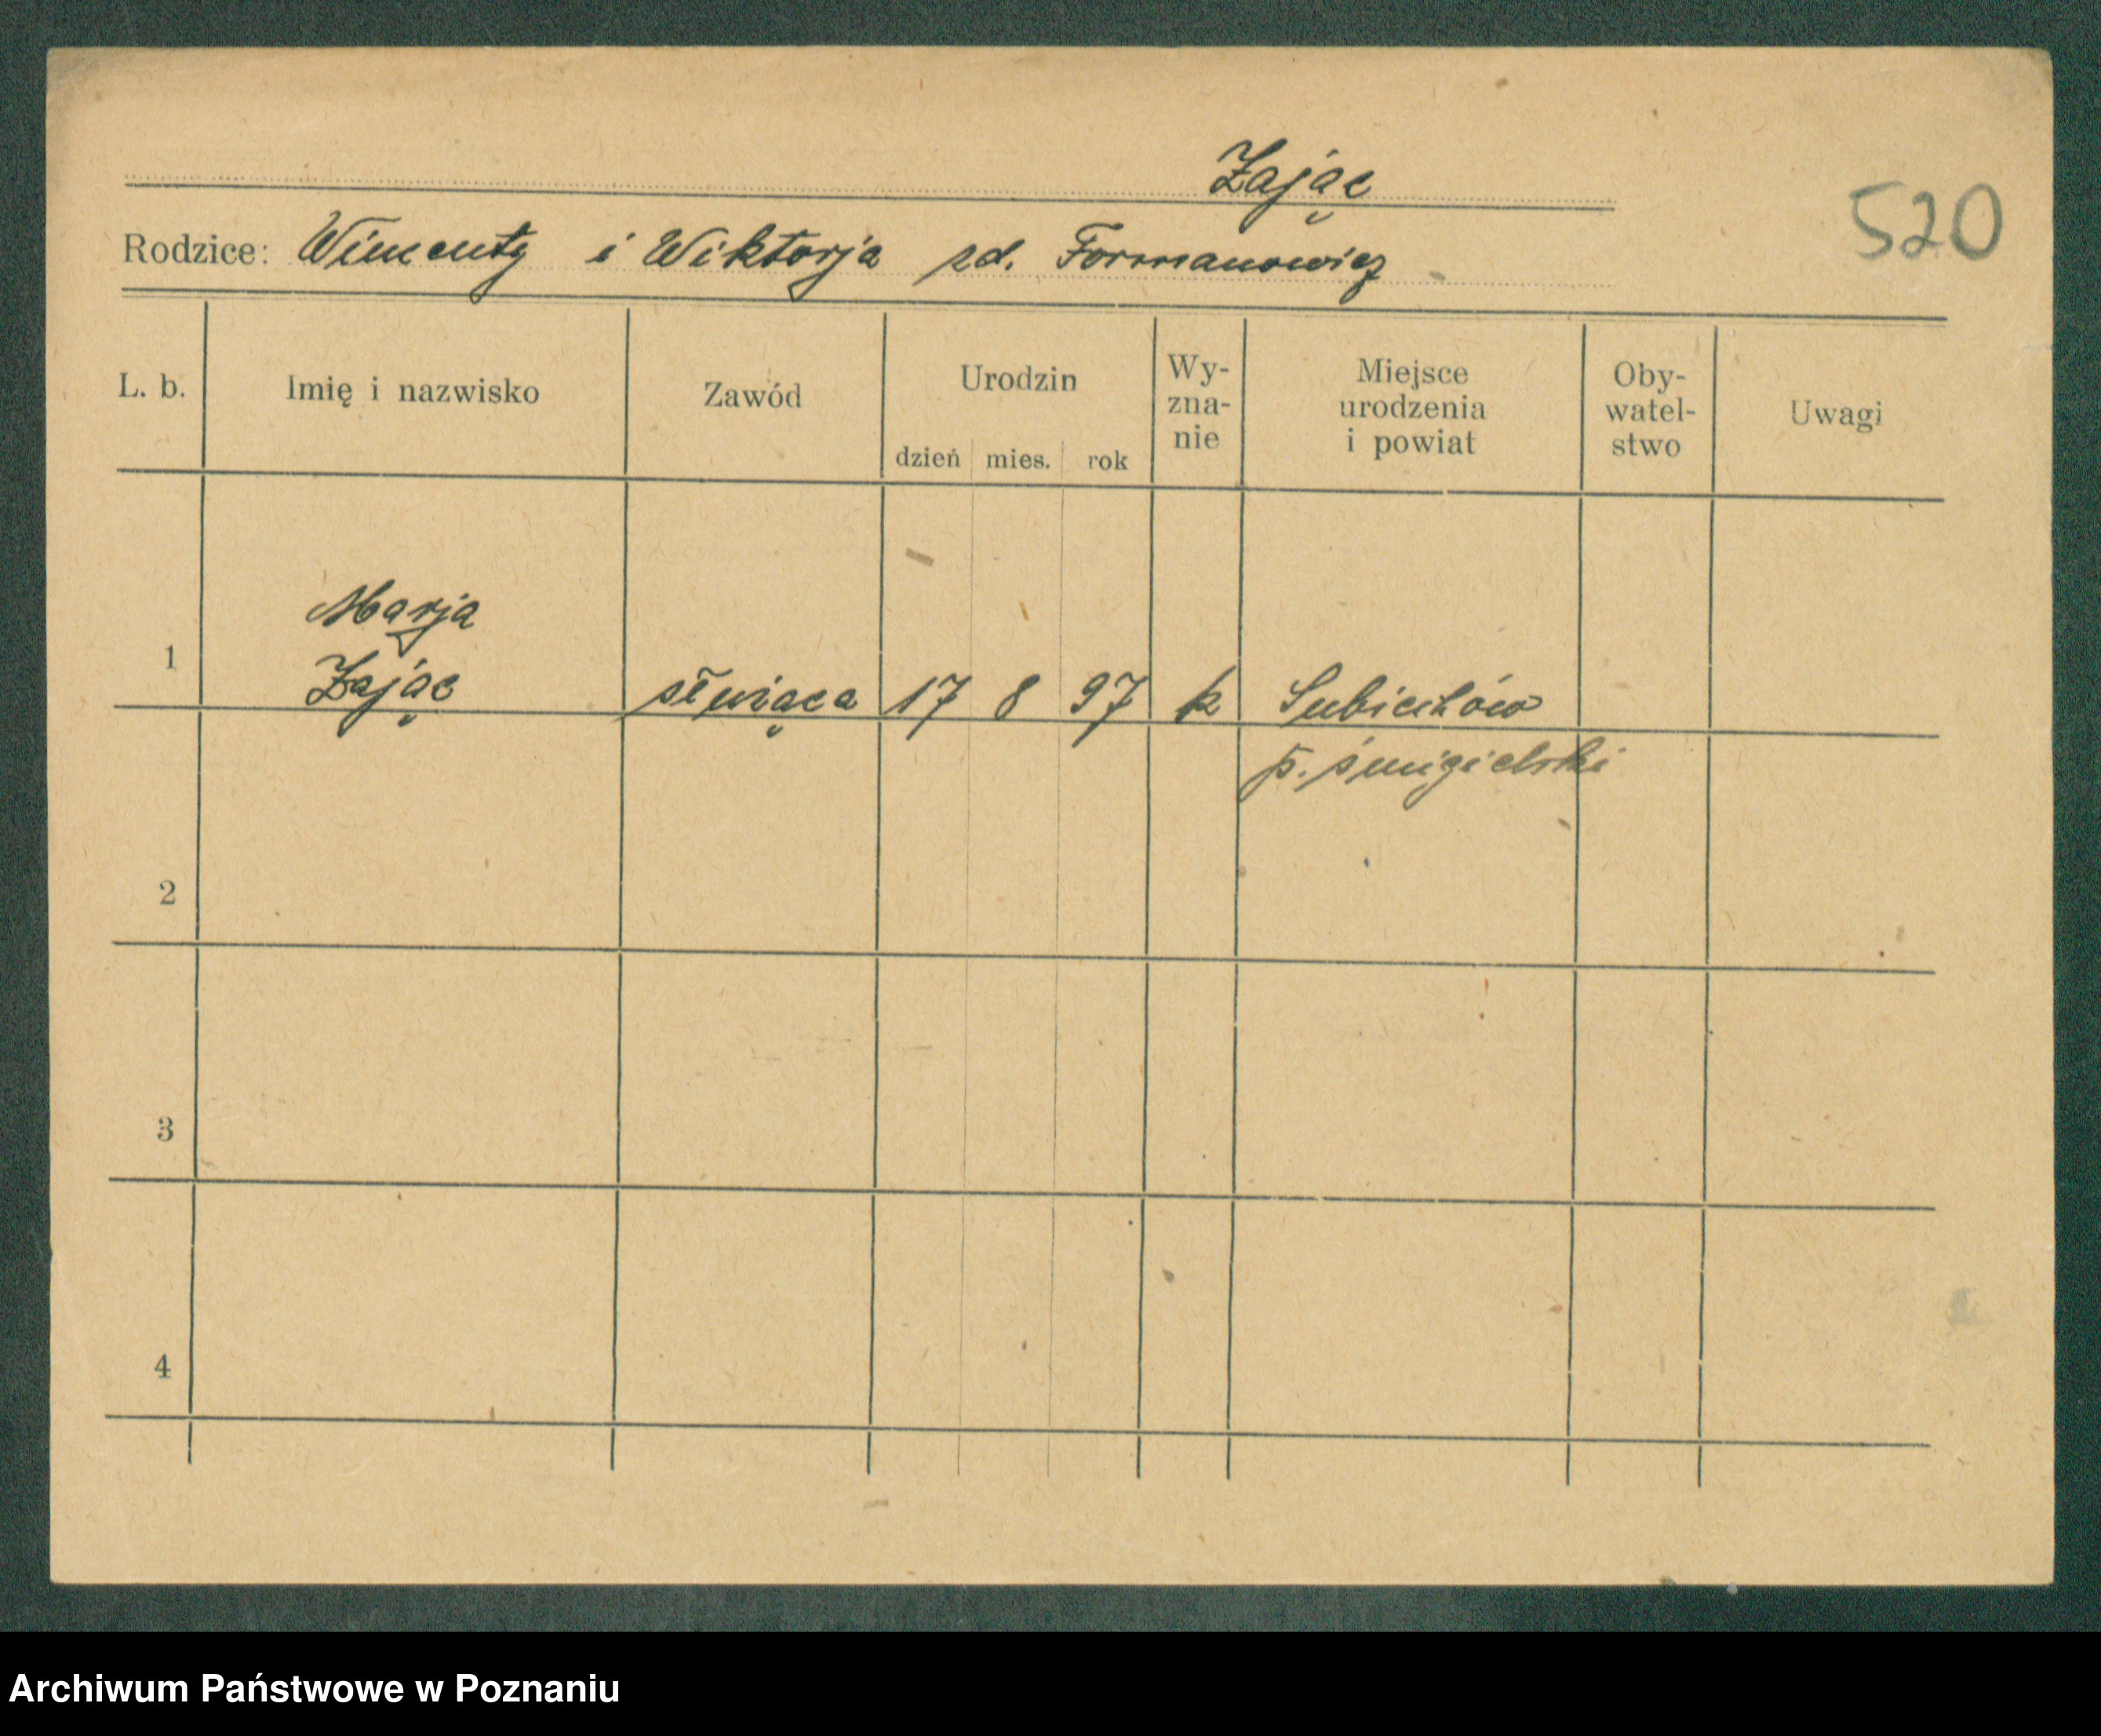 Zając
520
Rodzice: Wincenty i Wiktorja zd. Formanowicz
L. b. Imię i nazwisko Zawód Urodzin dzień mies. rok Wy-zna-nie Miejsce urodzenia i powiat Oby-watel-stwo Uwagi
Marja
1 Zając służąca 17 8 97 k
p. śmigielski
2
3
4
Archiwum Państwowe w Poznaniu